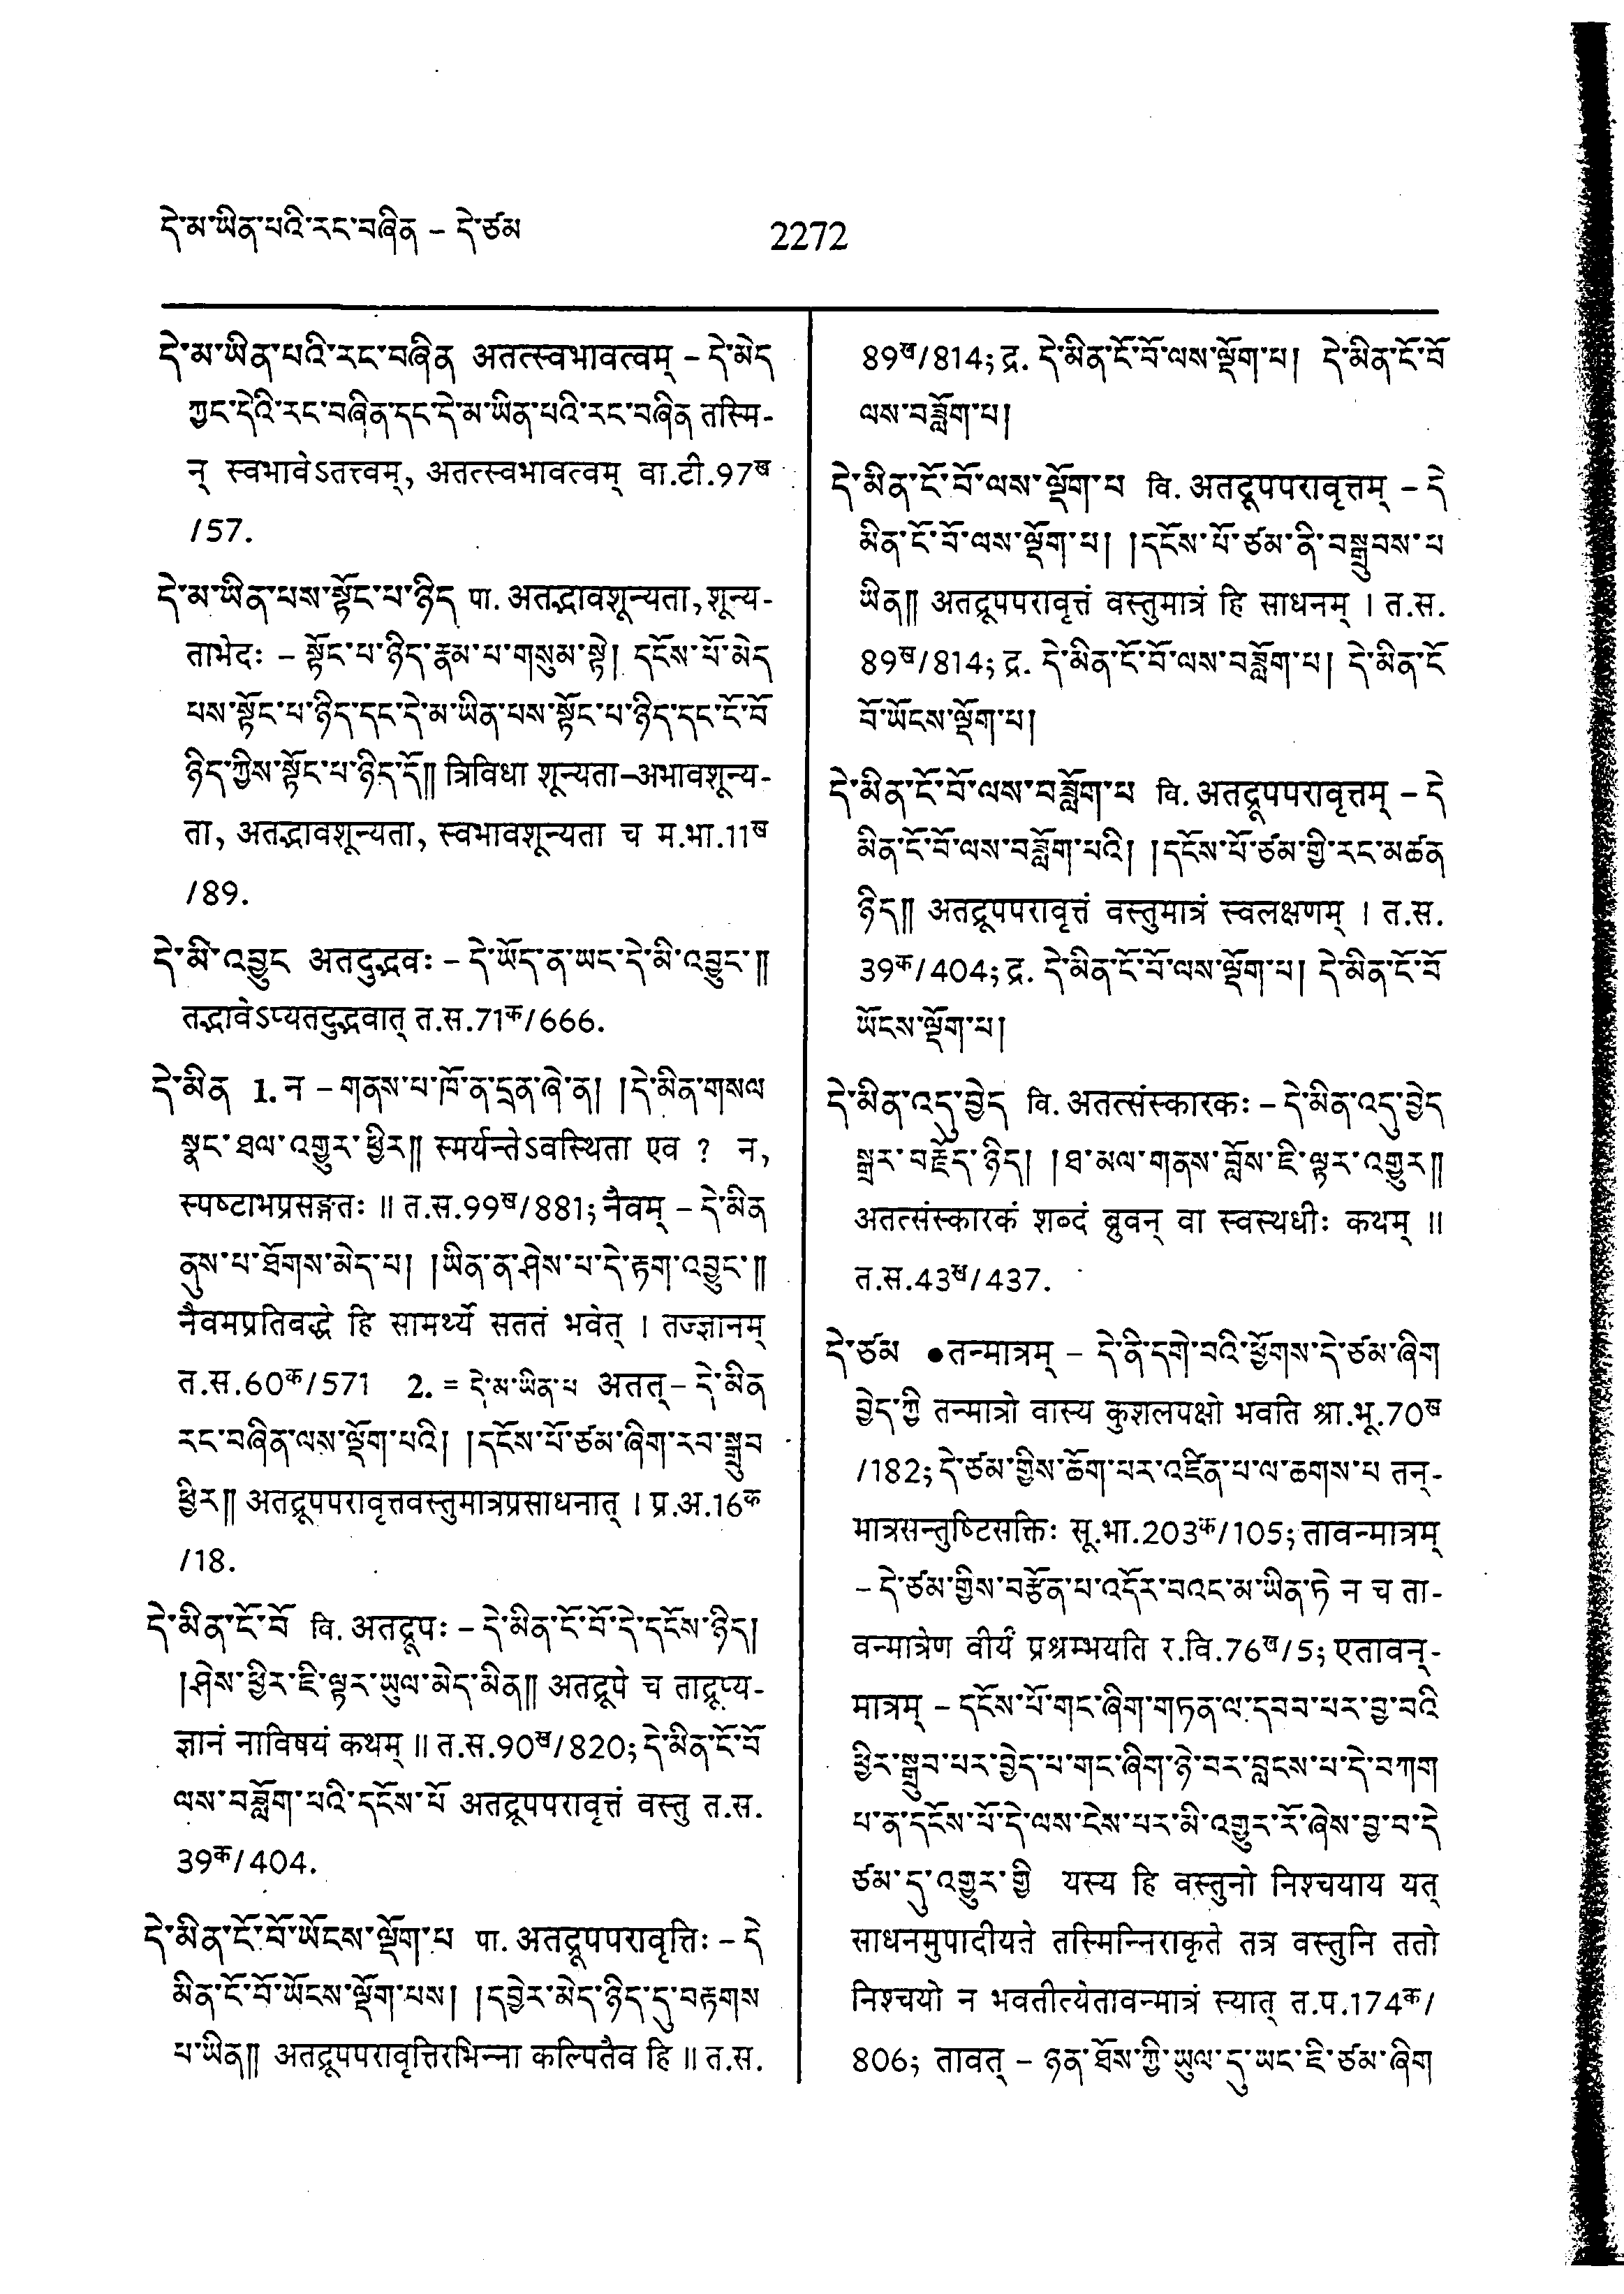 དེ་མ་ཡིན་པའི་རང་བཞིན – དེ་ཙམ
2272
དེ་མ་ཡིན་པའི་རང་བཞིན अतत्स्वभावत्वम् – དེ་མེད
ཀྱང་དེའི་རང་བཞིན་དང་དེ་མ་ཡིན་པའི་རང་བཞིན तस्मि-
न् स्वभावेऽतत्त्वम्, अतत्स्वभावत्वम् वा.टी.97ख
/57.
དེ་མ་ཡིན་པས་སྟོང་པ་ཉིད पा. अतद्भावशून्यता, शून्य-
ताभेदः – སྟོང་པ་ཉིད་རྣམ་པ་གསུམ་སྟེ། དངོས་པོ་མེད
པས་སྟོང་པ་ཉིད་དང་དེ་མ་ཡིན་པས་སྟོང་པ་ཉིད་དང་ངོ་བོ
ཉིད་ཀྱིས་སྟོང་པ་ཉིད་དོ༎ त्रिविधा शून्यता–अभावशून्य-
ता, अतद्भावशून्यता, स्वभावशून्यता च म.भा.11ख
/89.
དེ་མི་འབྱུང अतदुद्भवः – དེ་ཡོད་ན་ཡང་དེ་མི་འབྱུང་༎
तद्भावेऽप्यतदुद्भवात् त.स.71क/666.
དེ་མིན 1. न – གནས་པ་ཁོ་ན་དྲན་ཞེ་ན། །དེ་མིན་གསལ
སྣང་ཐལ་འགྱུར་ཕྱིར༎ स्मर्यन्तेऽवस्थिता एव ? न,
स्पष्टाभप्रसङ्गतः ॥ त.स.99ख/881; नैवम् – དེ་མིན
ནུས་པ་ཐོགས་མེད་པ། །ཡིན་ན་ཤེས་པ་དེ་རྟག་འབྱུང་༎
नैवमप्रतिबद्धे हि सामर्थ्ये सततं भवेत् । तज्ज्ञानम्
त.स.60क/571 2. = དེ་མ་ཡིན་པ अतत् – དེ་མིན
རང་བཞིན་ལས་ལྡོག་པའི། །དངོས་པོ་ཙམ་ཞིག་རབ་སྒྲུབ
ཕྱིར༎ अतद्रूपपरावृत्तवस्तुमात्रप्रसाधनात् । प्र.अ.16क
/18.
དེ་མིན་ངོ་བོ वि. अतद्रूपः – དེ་མིན་ངོ་བོ་དེ་དངོས་ཉིད།
།ཤེས་ཕྱིར་ཇི་ལྟར་ཡུལ་མེད་མིན༎ अतद्रूपे च ताद्रूप्य-
ज्ञानं नाविषयं कथम् ॥ त.स.90ख/820; དེ་མིན་ངོ་བོ
ལས་བཟློག་པའི་དངོས་པོ अतद्रूपपरावृत्तं वस्तु त.स.
39क/404.
དེ་མིན་ངོ་བོ་ཡོངས་ལྡོག་པ पा. अतद्रूपपरावृत्तिः – དེ
མིན་ངོ་བོ་ཡོངས་ལྡོག་པས། །དབྱེར་མེད་ཉིད་དུ་བརྟགས
པ་ཡིན༎ अतद्रूपपरावृत्तिरभिन्ना कल्पितैव हि ॥ त.स.
89ख/814; द्र. དེ་མིན་ངོ་བོ་ལས་ལྡོག་པ། དེ་མིན་ངོ་བོ
ལས་བཟློག་པ།
དེ་མིན་ངོ་བོ་ལས་ལྡོག་པ वि. अतद्रूपपरावृत्तम् – དེ
མིན་ངོ་བོ་ལས་ལྡོག་པ། །དངོས་པོ་ཙམ་ནི་བསྒྲུབས་པ
ཡིན༎ अतद्रूपपरावृत्तं वस्तुमात्रं हि साधनम् । त.स.
89ख/814; द्र. དེ་མིན་ངོ་བོ་ལས་བཟློག་པ། དེ་མིན་ངོ
བོ་ཡོངས་ལྡོག་པ།
དེ་མིན་ངོ་བོ་ལས་བཟློག་པ वि. अतद्रूपपरावृत्तम् – དེ
མིན་ངོ་བོ་ལས་བཟློག་པའི། །དངོས་པོ་ཙམ་གྱི་རང་མཚན
ཉིད༎ अतद्रूपपरावृत्तं वस्तुमात्रं स्वलक्षणम् । त.स.
39क/404; द्र. དེ་མིན་ངོ་བོ་ལས་ལྡོག་པ། དེ་མིན་ངོ་བོ
ཡོངས་ལྡོག་པ།
དེ་མིན་འདུ་བྱེད वि. अतत्संस्कारकः – དེ་མིན་འདུ་བྱེད
སྒྲར་བརྗོད་ཉིད། །ཐ་མལ་གནས་བློས་ཇི་ལྟར་འགྱུར༎
अतत्संस्कारकं शब्दं ब्रुवन् वा स्वस्थधीः कथम् ॥
त.स.43ख/437.
དེ་ཙམ ●तन्मात्रम् – དེ་ནི་དགེ་བའི་ཕྱོགས་དེ་ཙམ་ཞིག
བྱེད་ཀྱི तन्मात्रो वास्य कुशलपक्षो भवति श्रा.भू.70ख
/182; དེ་ཙམ་གྱིས་ཆོག་པར་འཛིན་པ་ལ་ཆགས་པ तन्-
मात्रसन्तुष्टिसक्तिः सू.भा.203क/105; तावन्मात्रम्
– དེ་ཙམ་གྱིས་བརྩོན་པ་འདོར་བའང་མ་ཡིན་ཏེ न च ता-
वन्मात्रेण वीर्यं प्रश्रम्भयति र.वि.76ख/5; एतावन्-
मात्रम् – དངོས་པོ་གང་ཞིག་གཏན་ལ་དབབ་པར་བྱ་བའི
ཕྱིར་སྒྲུབ་པར་བྱེད་པ་གང་ཞིག་ཉེ་བར་བླངས་པ་དེ་བཀག
པ་ན་དངོས་པོ་དེ་ལས་ངེས་པར་མི་འགྱུར་རོ་ཞེས་བྱ་བ་དེ
ཙམ་དུ་འགྱུར་གྱི यस्य हि वस्तुनो निश्चयाय यत्
साधनमुपादीयते तस्मिन्निराकृते तत्र वस्तुनि ततो
निश्चयो न भवतीत्येतावन्मात्रं स्यात् त.प.174क/
806; तावत् – ཉན་ཐོས་ཀྱི་ཡུལ་དུ་ཡང་ཇི་ཙམ་ཞིག